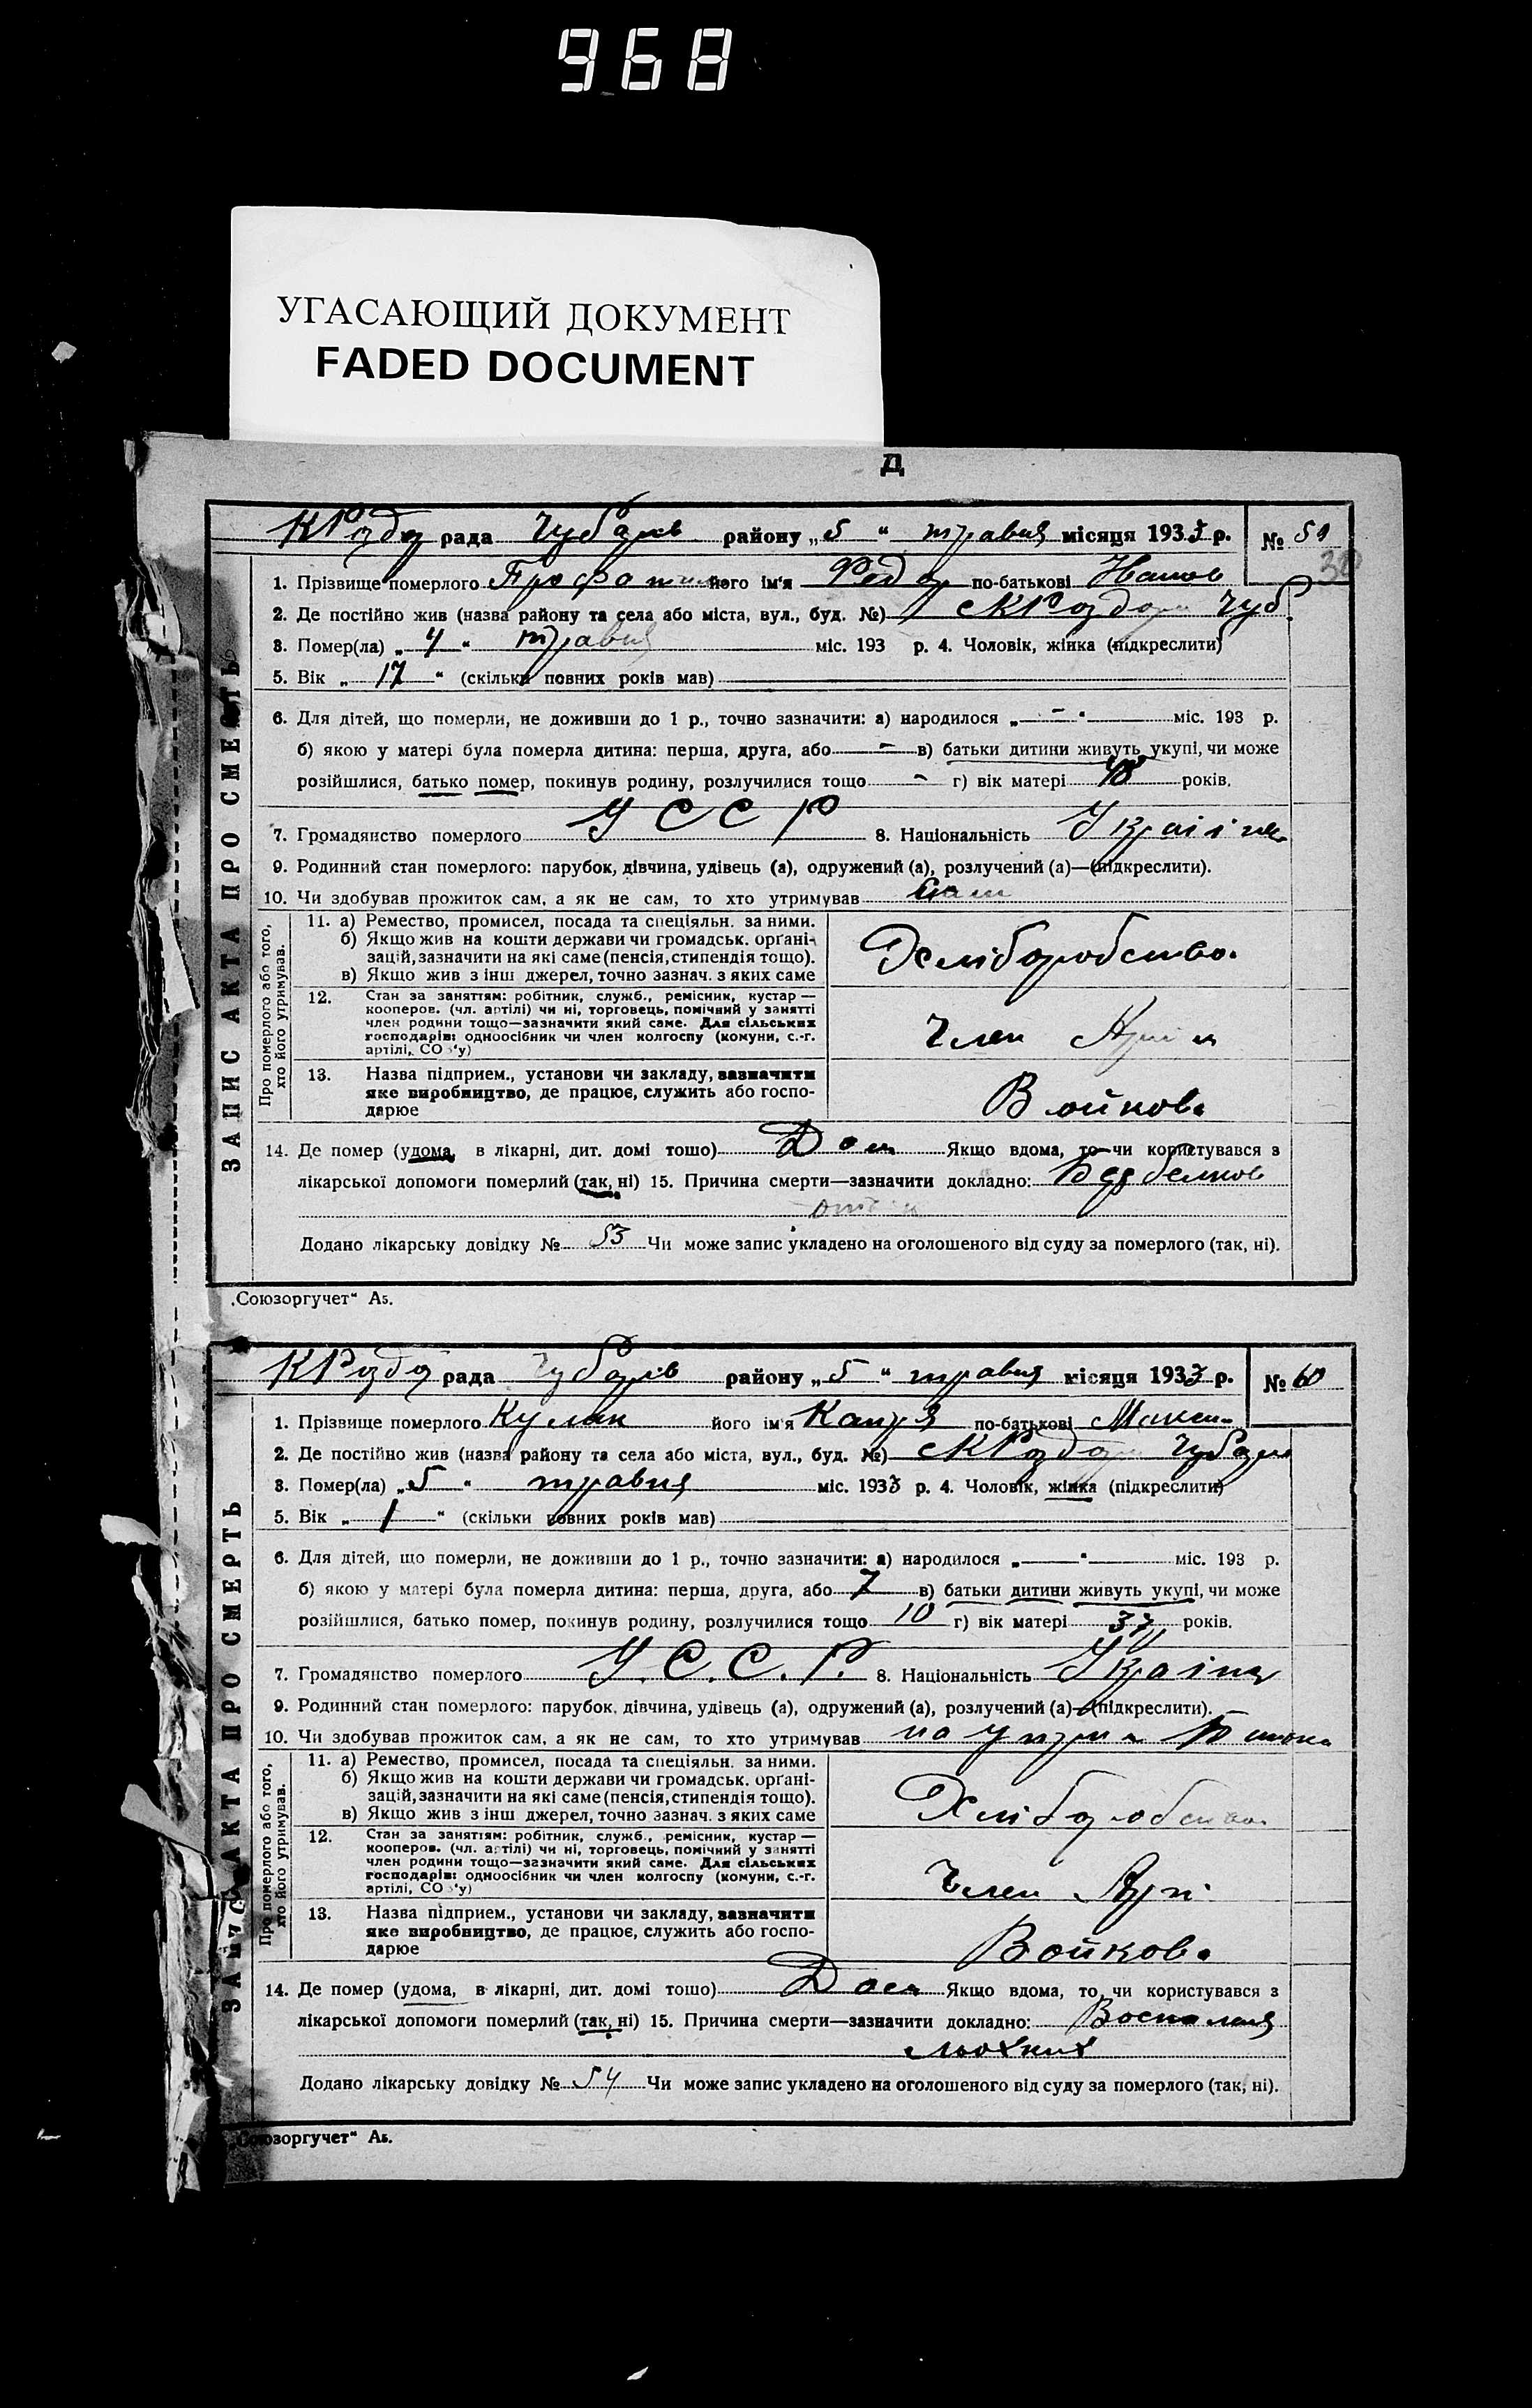 968
УГАСАЮЩИЙ ДОКУМЕНТ
FADED DOCUMENT
Д
рада Чубарів району „5“ травня місяця 1933 р. №
30
1. Прізвище померлого його ім'я Федор по-батькові Иванов
2. Де постійно жив (назва району та села або міста, вул., буд. №) Чуб
3. Помер(ла) „4“ травня міс. 193 р. 4. Чоловік, жінка (підкреслити)
5. Вік „17“ (скільки повних років мав)
6. Для дітей, що померли, не доживши до 1 р., точно зазначити: а) народилося „-“ міс. 193 р.
б) якою у матері була померла дитина: перша, друга, або - в) батьки дитини живуть укупі, чи може
розійшлися, батько помер, покинув родину, розлучилися тощо - г) вік матері 48 років.
7. Громадянство померлого УССР 8. Національність
9. Родинний стан померлого: парубок, дівчина, удівець (а), одружений (а), розлучений (а)—(підкреслити).
10. Чи здобував прожиток сам, а як не сам, то хто утримував Сам
ЗАПИС АКТА ПРО СМЕРТЬ
Про померлого або того, хто його утримував.
11. а) Ремество, промисел, посада та спеціяльн. за ними.
б) Якщо жив на кошти держави чи громадськ. органі-
зацій, зазначити на які саме (пенсія, стипендія тощо).
в) Якщо жив з інш джерел, точно зазнач. з яких саме
Хліборобство.
12. Стан за заняттям: робітник, служб., ремісник, кустар —
кооперов. (чл. артілі) чи ні, торговець, помічний у занятті
член родини тощо—зазначити який саме. Для сільських
господарів: одноосібник чи член колгоспу (комуни, с.-г.
артілі, СО у)
Член
13. Назва підприєм., установи чи закладу, зазначити
яке виробництво, де працює, служить або госпо-
дарює
Войкова
14. Де помер (удома, в лікарні, дит. домі тошо) Дом Якщо вдома, то чи користувався з
лікарської допомоги померлий (так, ні) 15. Причина смерти—зазначити докладно:
Додано лікарську довідку № 53 Чи може запис укладено на оголошеного від суду за померлого (так, ні).
„Союзоргучет“ А5.
рада Чубарів району „5“ травня місяця 1933 р. № 60
1. Прізвище померлого Кулик його ім'я по-батькові Максим
2. Де постійно жив (назва району та села або міста, вул., буд. №) Чубарь
3. Помер(ла) „5“ травня міс. 1933 р. 4. Чоловік, жінка (підкреслити)
5. Вік „1“ (скільки повних років мав)
6. Для дітей, що померли, не доживши до 1 р., точно зазначити: а) народилося „ “ міс. 193 р.
б) якою у матері була померла дитина: перша, друга, або 7 в) батьки дитини живуть укупі, чи може
розійшлися, батько помер, покинув родину, розлучилися тощо 10 г) вік матері 37 років.
7. Громадянство померлого У.С.С.Р. 8. Національність
9. Родинний стан померлого: парубок, дівчина, удівець (а), одружений (а), розлучений (а)—(підкреслити).
10. Чи здобував прожиток сам, а як не сам, то хто утримував на
ЗАПИС АКТА ПРО СМЕРТЬ
Про померлого або того, хто його утримував.
11. а) Ремество, промисел, посада та спеціяльн. за ними.
б) Якщо жив на кошти держави чи громадськ. органі-
зацій, зазначити на які саме (пенсія, стипендія тощо).
в) Якщо жив з інш джерел, точно зазнач. з яких саме
Хліборобство
12. Стан за заняттям: робітник, служб., ремісник, кустар —
кооперов. (чл. артілі) чи ні, торговець, помічний у занятті
член родини тощо—зазначити який саме. Для сільських
господарів: одноосібник чи член колгоспу (комуни, с.-г.
артілі, СО у)
Член
13. Назва підприєм., установи чи закладу, зазначити
яке виробництво, де працює, служить або госпо-
дарює
Войкова
14. Де помер (удома, в лікарні, дит. домі тошо) Дом Якщо вдома, то чи користувався з
лікарської допомоги померлий (так, ні) 15. Причина смерти—зазначити докладно:
Додано лікарську довідку № 54 Чи може запис укладено на оголошеного від суду за померлого (так, ні).
„Союзоргучет“ А5.